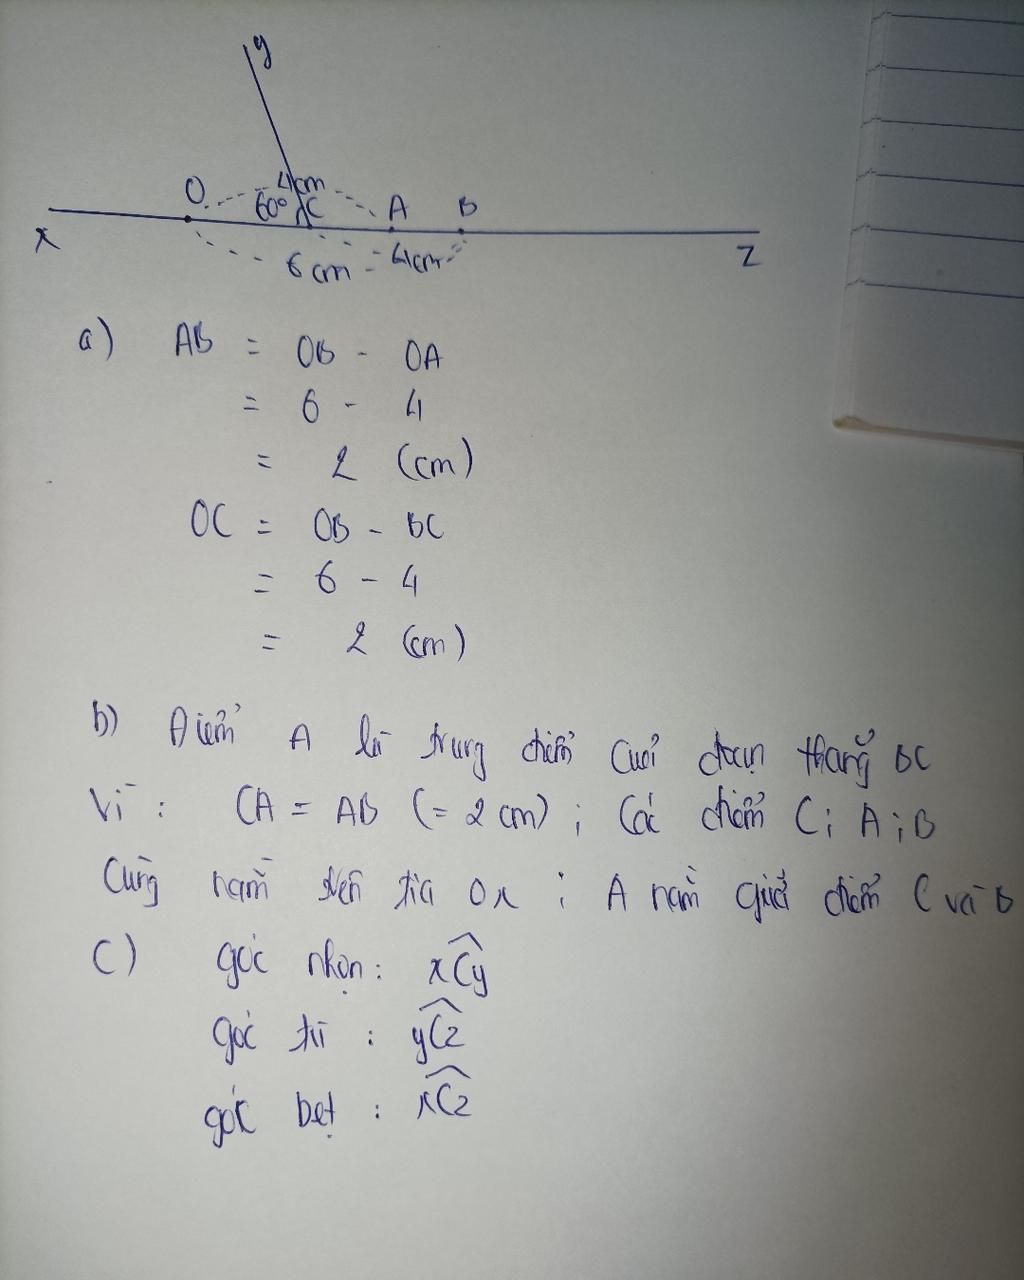 y
O 4cm
60° C A B
x 6cm 4cm z
a) AB = OB - OA
= 6 - 4
= 2 (cm)
OC = OB - BC
= 6 - 4
= 2 (cm)
b) Điểm A là trung điểm của đoạn thẳng BC
Vì : CA = AB (= 2 cm) ; Các điểm C ; A ; B
Cùng nằm trên tia Ox ; A nằm giữa điểm C và B
C) góc nhọn : xCy
góc tù : yCz
góc bẹt : xCz